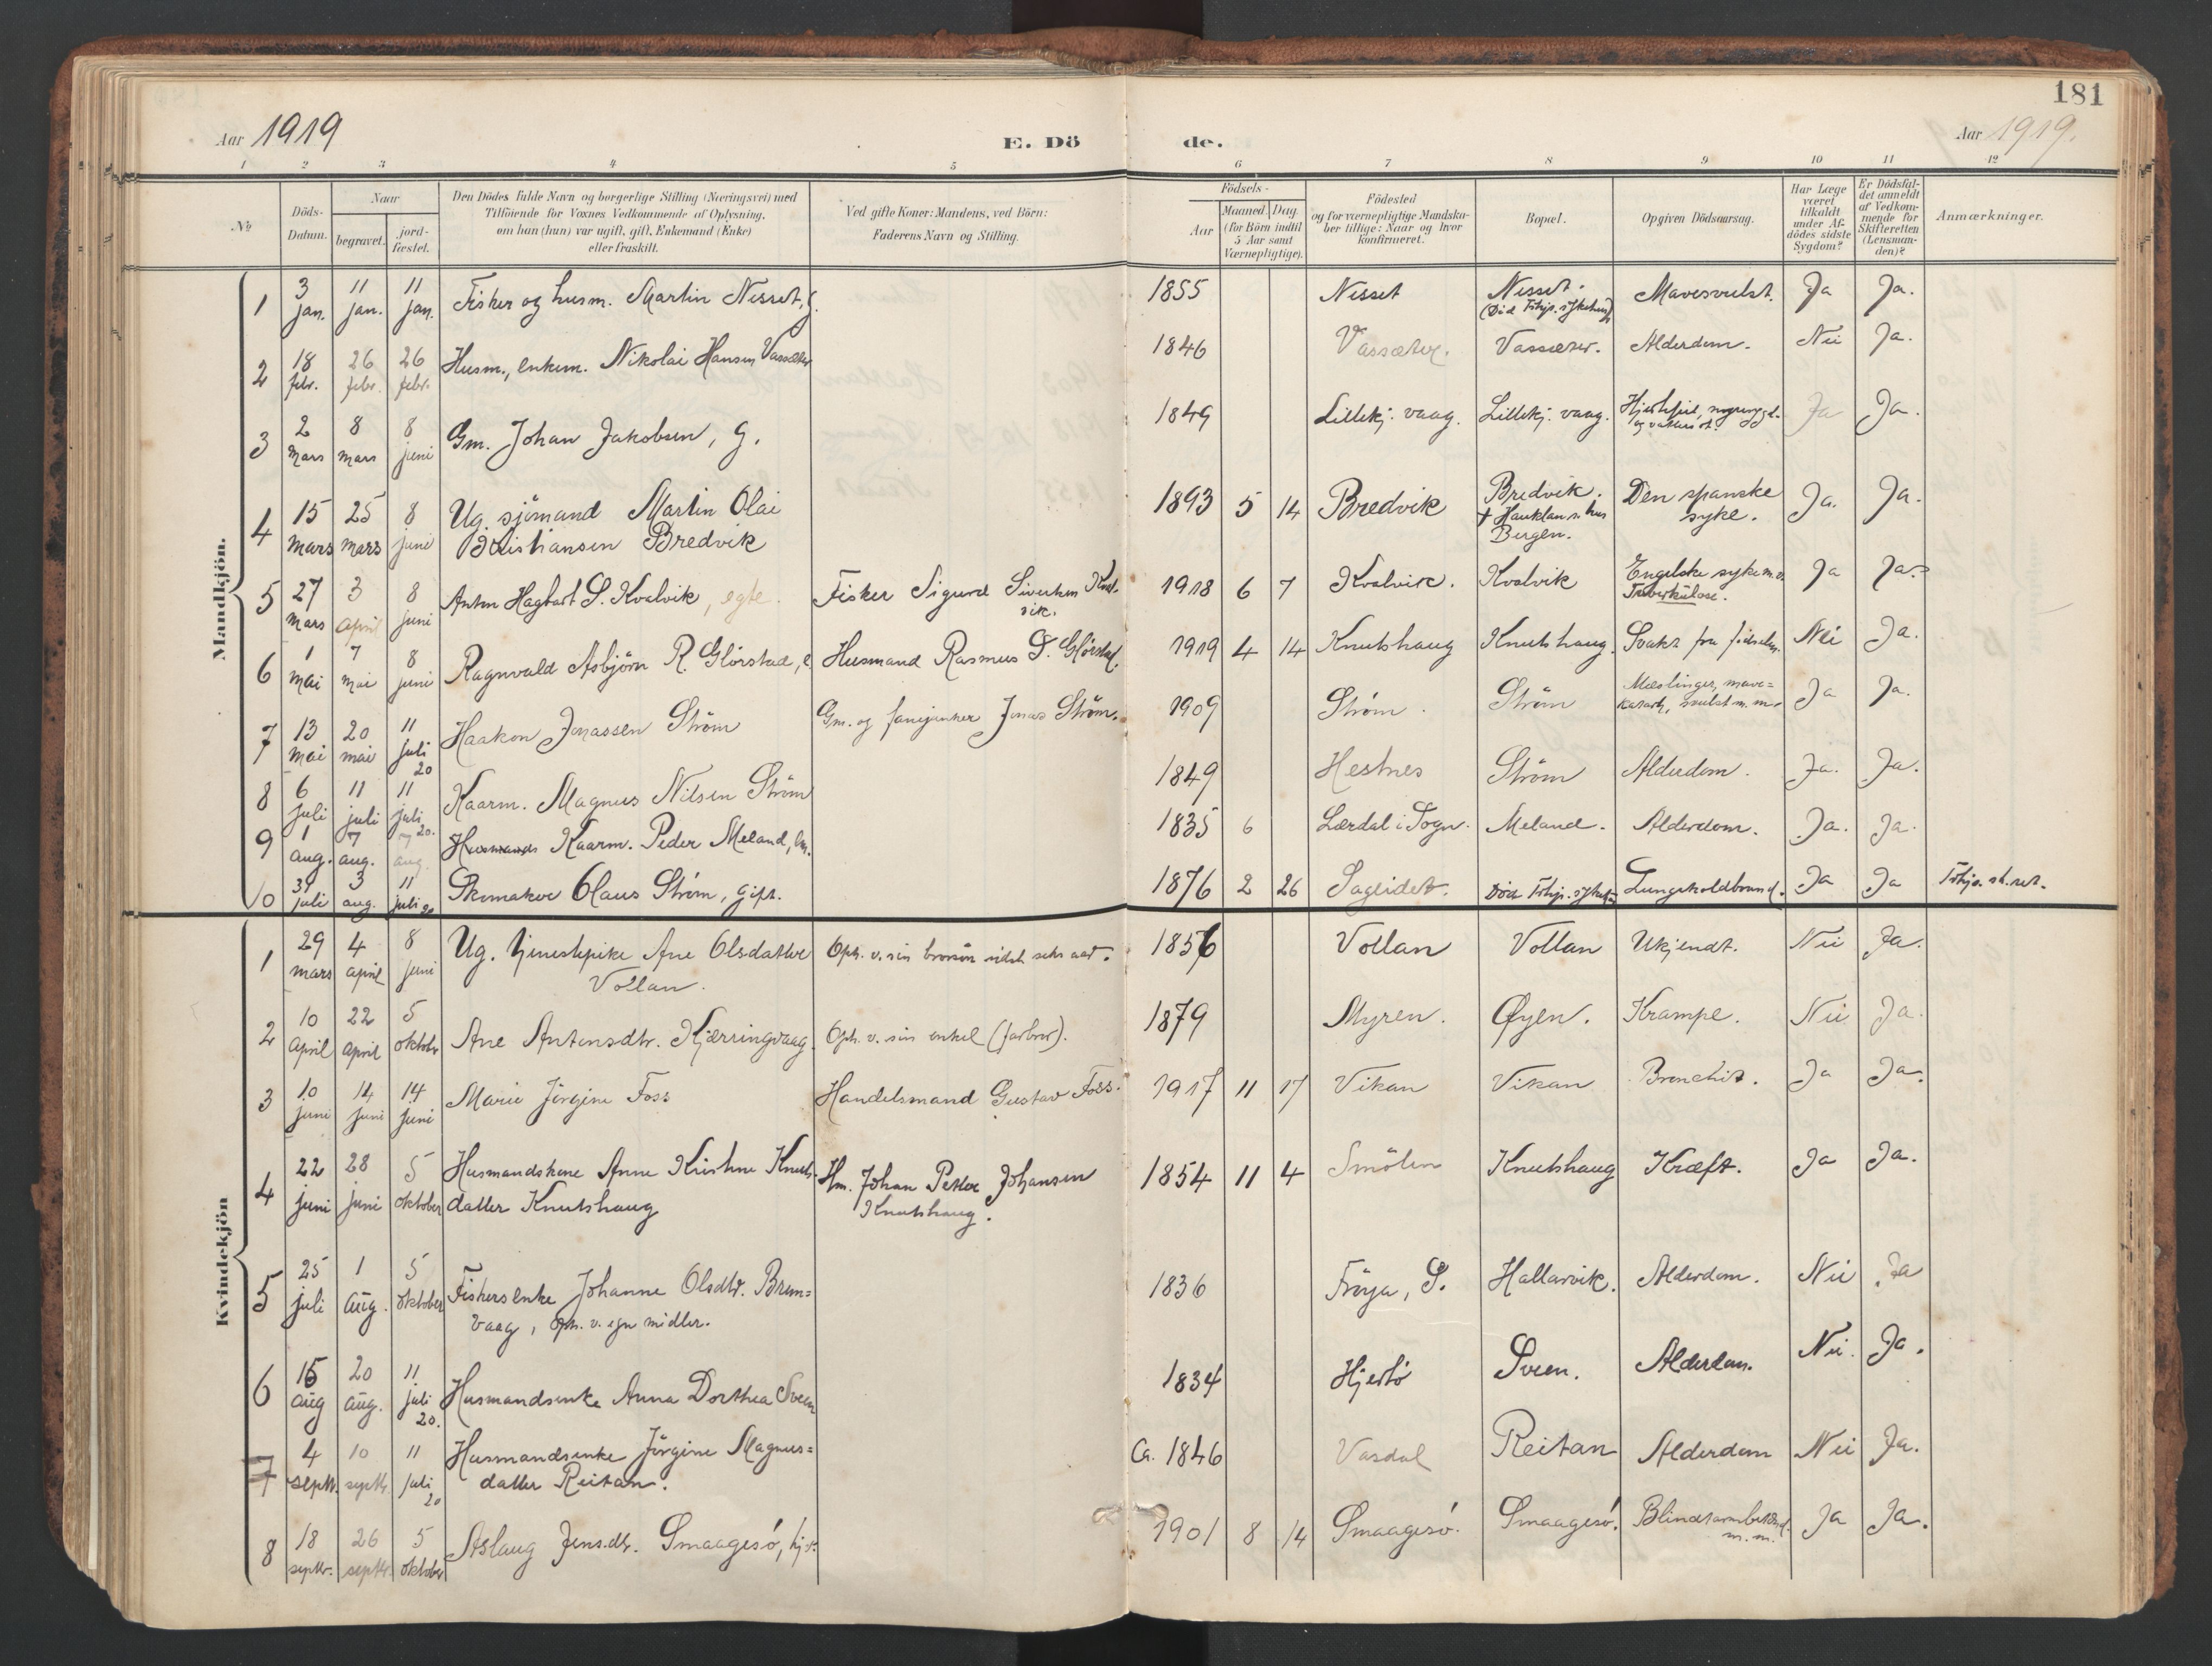 181
Aar 1919
E. Dö
de.
Aar 1919.
1 2 3 4 5 6 7 8 9 10 11 12
№
Döds-
Datum.
Naar
begravet.
jord-
fæstet.
Den Dödes fulde Navn og borgerlige Stilling (Næringsvei) med
Tilföiende for Voxnes Vedkommende af Oplysning,
om han (hun) var ugift, gift, Enkemand (Enke)
eller fraskilt.
Ved gifte Koner: Mandens, ved Börn:
Faderens Navn og Stilling.
Födsels-
Aar
Maaned. Dag.
(for Börn indtil
5 Aar samt
Værnepligtige).
Födested
og for værnepligtige Mandska-
ber tillige: Naar og hvor
konfirmeret.
Bopæl.
Opgiven Dödsaarsag.
Har Læge
været
tilkaldt
under Af-
dödes sidste
Sygdom?
Er Dödsfal-
det anmeldt
af Vedkom-
mende for
Skifteretten
(Lensman-
den)?
Anmærkninger.
Mandkjön.
1 3 jan. 11 jan. 11 jan. Fisker og husm. Martin Nesset, g. 1855 Nesset Nesset. Mavesvulst. Ja Ja.
2 18 febr. 26 febr. 26 febr. Husm., enkem. Nikolai Hansen Vassæter 1846 Vassæter. Vassæter. Alderdom. Nei Ja.
3 2 mars 8 mars 8 juni Gm. Johan Jakobsen, g. 1849 Lillekj. vaag. Lillekj. vaag. Hjertefeil, Ja Ja.
4 15 mars 25 mars 8 juni Ug. sjömand Martin Olai 1893 5 14 Bredvik Bredvik. Den spanske Ja. Ja.
Kristiansen Bredvik syke.
Bergen.
5 27 mars 3 april 8 juni Anton Hagbart S. Kvalvik, egte. Fisker Sigurd Sivertsen Kval- 1918 6 7 Kvalvik. Kvalvik Engelske syke m.v. Ja Ja.
vik. Tuberkulose.
6 1 mai 7 mai 8 juni Ragnvald Asbjörn R. Glörstad, e Husmand Rasmus P. Glörstad. 1919 4 14 Knutshaug Knutshaug. Svakt fra födselen. Nei Ja.
7 13 mai 20 mai 11 juli 20 Haakon Jonassen Ström Gm. og fanejunker Jonas Ström. 1909 Ström. Ström Mæslinger, mave=
katarh, svulst m.m. Ja Ja.
8 6 juli 11 juli 11 juli 20. Kaarm. Magnus Nilsen Ström 1849 Hestnes Ström Alderdom. Ja. Ja.
9 1 aug. 7 aug. 7 aug. Husmands Kaarm. Peder Meland, em. 1835 6 Lærdal i Sogn. Meland. Alderdom. Ja. Ja.
10 31 juli 3 aug. 11 juli 20 Skomaker Olaus Ström, gift. 1876 2 26 Sageidet. Död Lungekoldbrand. Ja Ja
Kvindekjön
1 29 mars 4 april 8 juni Ug. tjenestepike Ane Olsdatter Oph. v. sin brorsön sidste seks aar. 1856 Vollan Vollan Ukjendt. Nei Ja.
Vollan.
2 10 april 22 april 5 oktobr Ane Antonsdtr. Kjærringvaag. Oph. v. sin onkel (farbror). 1879 Myren. Øyen. Krampe. Nei Ja.
3 10 juni 14 juni 14 juni Marie Jörgine Foss Handelsmand Gustav Foss. 1917 11 17 Vikan Vikan Bronchit. Ja Ja.
4 22 juni 28 juni 5 oktober Husmandskone Anne Kristine Knuts- Hm. Johan Petter Johansen 1854 11 4 Smölen Knutshaug Kræft. Ja Ja.
datter Knutshaug Knutshaug.
5 25 juli 1 aug. 5 oktober Fiskersenke Johanne Olsdtr. Brem= 1836 Fröya, S. Hallarvik. Alderdom. Nei Ja
vaag, oph. v. egne midler.
6 15 aug 20 aug. 11 juli 20. Husmandsenke Anna Dorthea Sveen 1834 Hjertö Sveen. Alderdom. Nei. Ja.
7 4 septr. 10 septr. 11 juli 20 Husmandsenke Jörgine Magnus= Ca. 1846 Vasdal Reitan Alderdom Nei Ja.
datter Reitan.
8 18 septr. 26 septr. 5 oktober Aslaug Jensdtr. Smaagesö, 1901 8 14 Smaagesö. Smaagesö. Blindtarmbetænd. Ja Ja.
m.m.